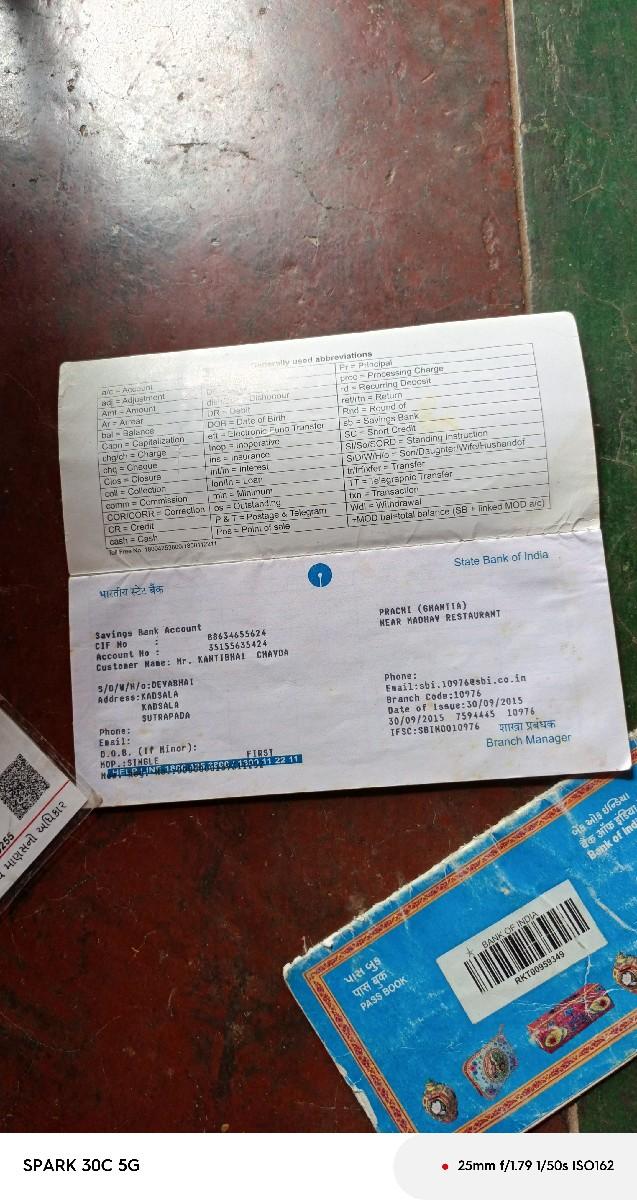 Generally used abbreviations
a/c = Account
adj = Adjustment
Amt = Amount
Ar = Arrear
bal = Balance
Capn = Capitalization
chg/ch = Charge
chq = Cheque
Clos = Closure
coll = Collection
comm = Commission
COR/CORR = Correction
CR = Credit
cash = Cash
Dishonour
DR = Debit
DOH = Date of Birth
eft = Electronic Fund Transfer
Inop = Inoperative
ins = Insurance
int/in = Interest
lon/ln = Loan
min = Minimum
os = Outstanding
P & T = Postage & Telegram
Pos = Point of sale
Pr = Principal
proc = Processing Charge
rd = Recurring Deposit
ret/rtn = Return
Rnd = Round of
sb = Savings Bank
SC = Short Credit
SI/So/SORD = Standing Instruction
S/D/W/H/o = Son/Daughter/Wife/Husbandof
tr/trf/xfer = Transfer
TT = Telegraphic Transfer
txn = Transaction
Wdl = Withdrawal
+MOD bal=total balance (SB + linked MOD a/c)
Toll Free No. 18004253800/1800112211
भारतीय स्टेट बैंक
State Bank of India
Savings Bank Account
CIF No : 88634655624
Account No : 35155635424
Customer Name: Mr. KANTIBHAI CHAVDA
S/D/W/H/o:DEVABHAI
Address:KADSALA
KADSALA
SUTRAPADA
Phone:
Email:
D.O.B. (If Minor):
MOP.:SINGLE FIRST
HELP LINE 1800 425 3800 / 1800 11 22 11
PRACHI (GHANTIA)
NEAR MADHAV RESTAURANT
Phone:
Email:sbi.10976@sbi.co.in
Branch Code:10976
Date of Issue:30/09/2015
30/09/2015 7594445 10976
IFSC:SBIN0010976
शाखा प्रबंधक
Branch Manager
255
માણસનો અધિકાર
બેંક ઓફ ઇન્ડિયા
बैंक ऑफ इंडिया
Bank of Ind
પાસ બુક
पास बुक
PASS BOOK
BANK OF INDIA
RKT00959349
SPARK 30C 5G
25mm f/1.79 1/50s ISO162